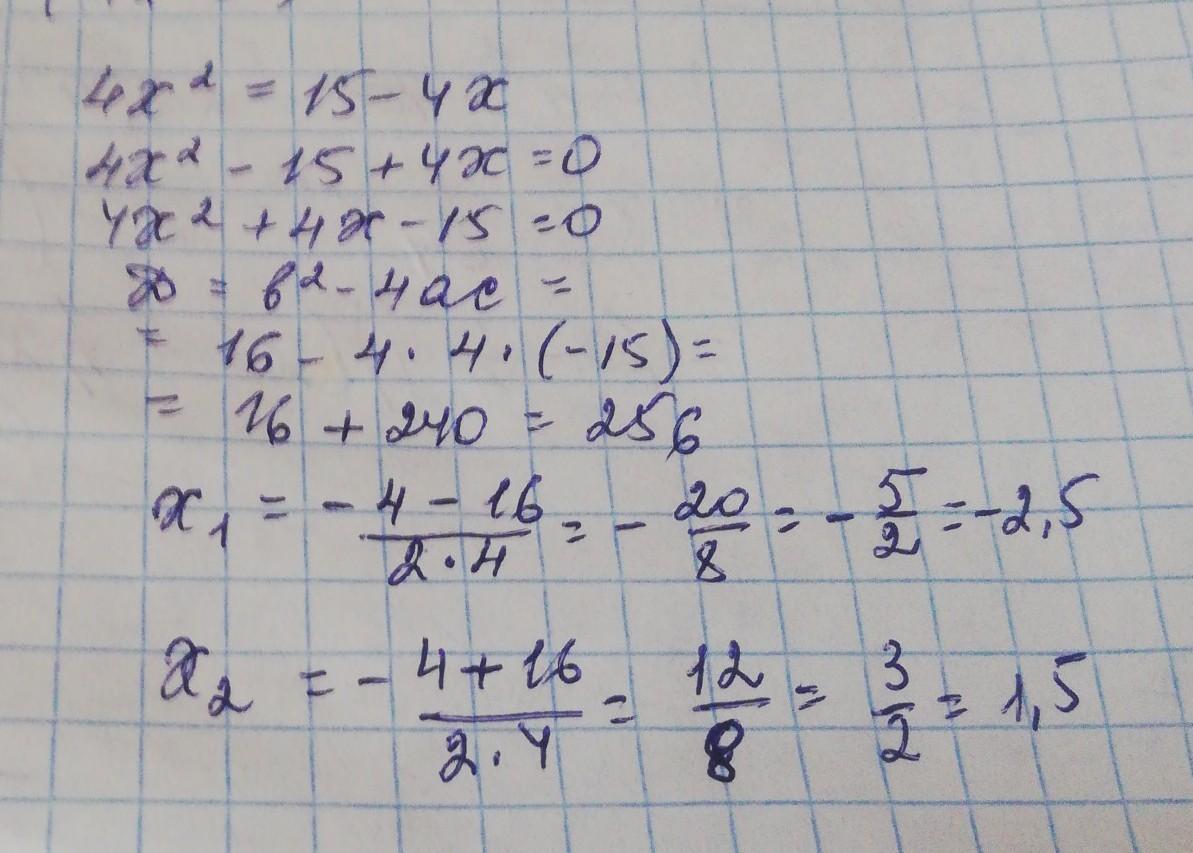 4x² = 15 - 4x
4x² - 15 + 4x = 0
4x² + 4x - 15 = 0
D = b² - 4ac =
= 16 - 4 · 4 · (-15) =
= 16 + 240 = 256
x₁ = - (4 - 16)/(2 · 4) = - 20/8 = - 5/2 = -2,5
x₂ = - (4 + 16)/(2 · 4) = 12/8 = 3/2 = 1,5